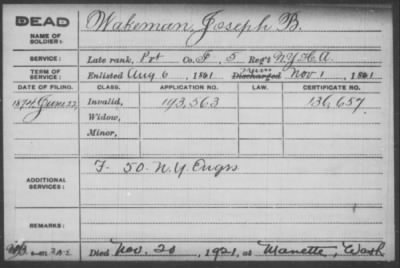 DEAD
NAME OF SOLDIER: Wakeman, Joseph B.
SERVICE: Late rank, Pvt Co. F, 5 Reg't N.Y.H.A.
TERM OF SERVICE: Enlisted Aug 6, 1861 Discharged Nov 1, 1861
DATE OF FILING. CLASS. APPLICATION NO. LAW. CERTIFICATE NO.
1874 June 22, Invalid, 193,563 136,657
Widow,
Minor,
ADDITIONAL SERVICES: F. 50. N.Y. Engrs
REMARKS:
Died Nov. 20, 1921, at Manette, Wash